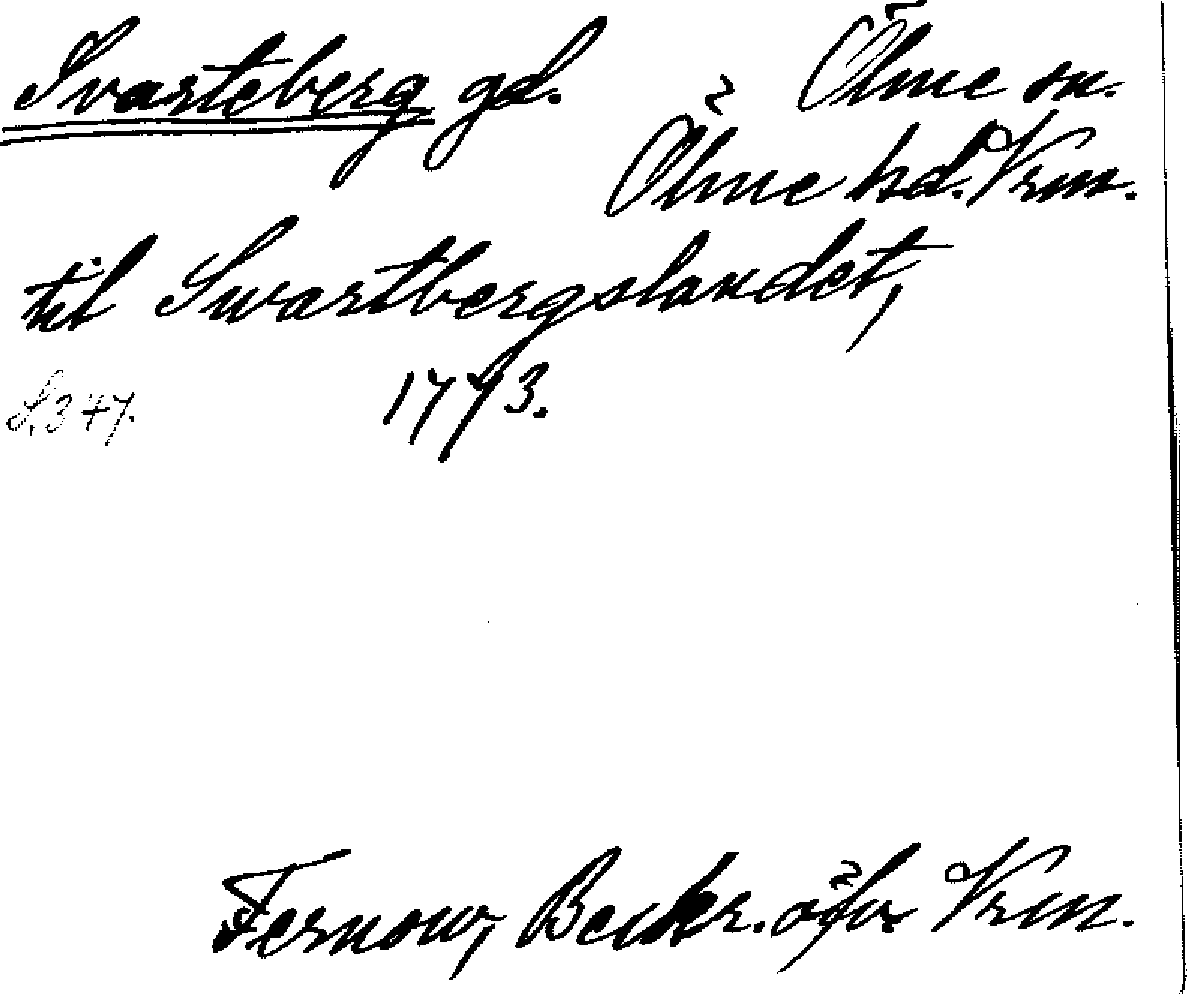 Svarteberg gd. Ölme sn.
Ölme hd. Vrm.
til Swartbergslandet,
S. 347. 1773.
Fernow, Beskr. öfv. Vrm.